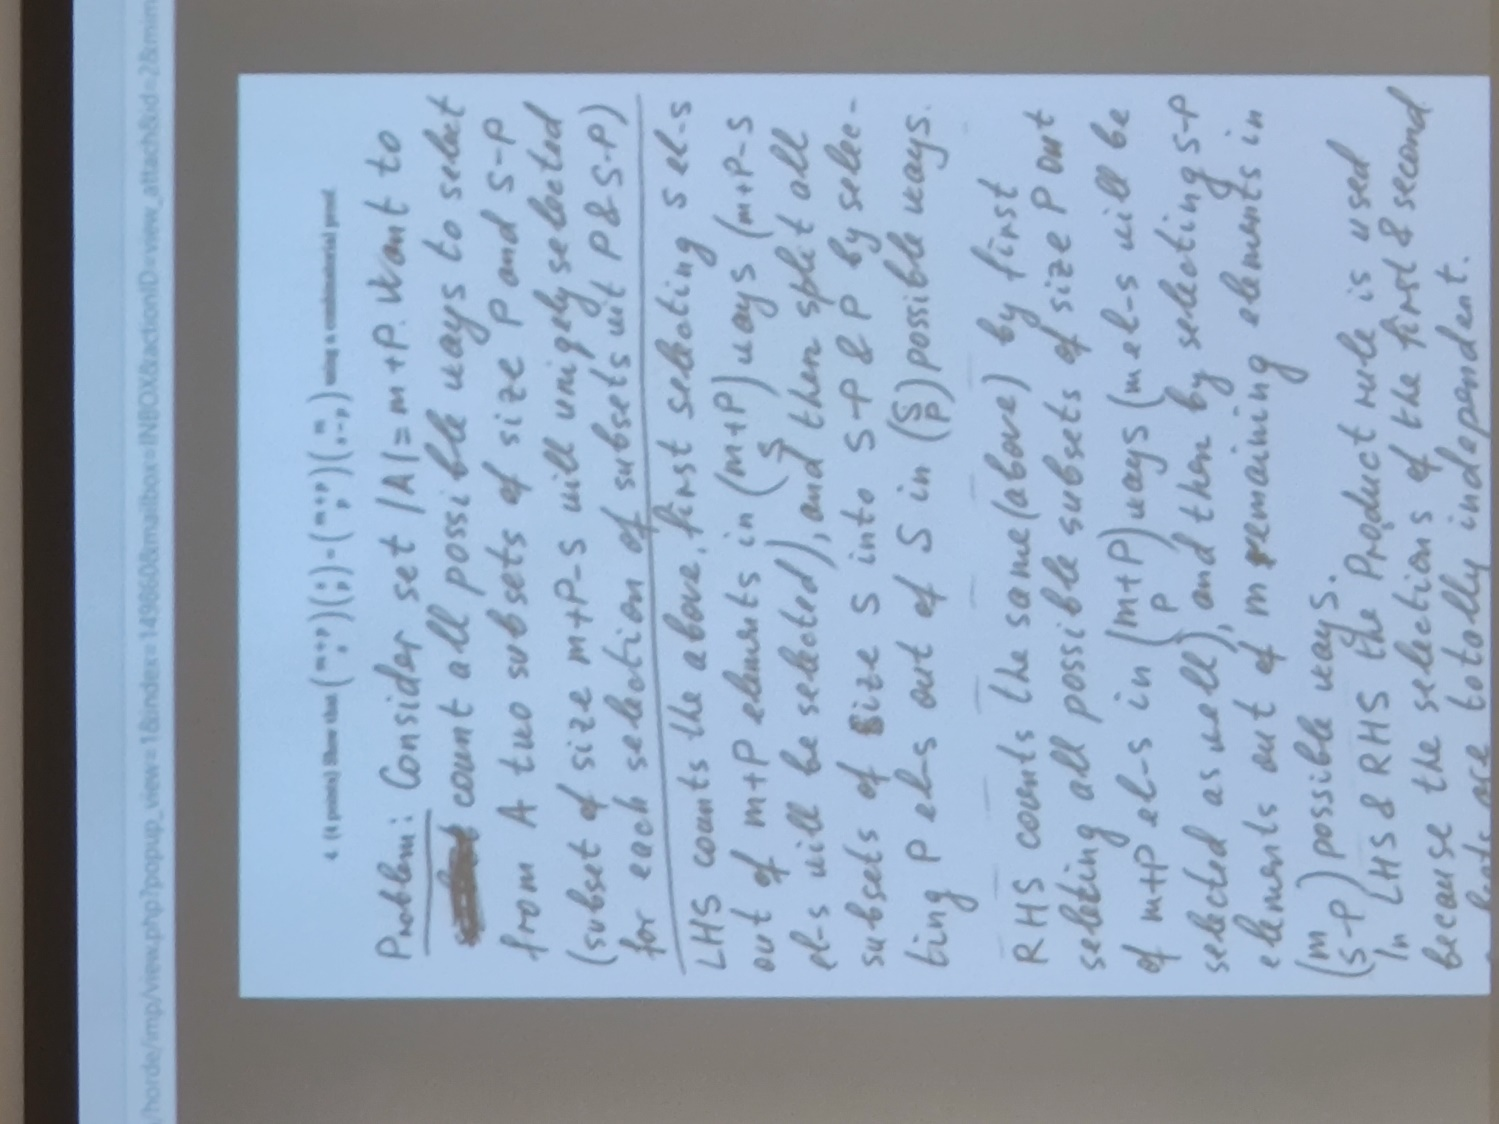 /horde/imp/view.php?popup_view=1&index=149860&mailbox=INBOX&actionID=view_attach&id=2&mim
4. (4 points) Show that (m+p s)(s p) = (m+p p)(m s-p) using a combinatorial proof.
Problem: Consider set |A|= m+P. Want to
count all possible ways to select
from A two subsets of size P and S-P
(subset of size m+P-S will uniqely selected
for each selection of subsets wit P & S-P)
LHS counts the above, first selecting s el-s
out of m+P elements in (m+P S) ways (m+P-s
el-s will be selected), and then split all
subsets of size S into S-P & P by selec-
ting P el-s out of S in (S P) possible ways.
RHS counts the same (above) by first
seleting all possible subsets of size P out
of m+P el-s in (m+P P) ways (m el-s will be
selected as well), and then by selecting S-P
elements out of m remaining elements in
(m S-P) possible ways.
In LHS & RHS the Product rule is used
because the selections of the first & second
are totally independent.